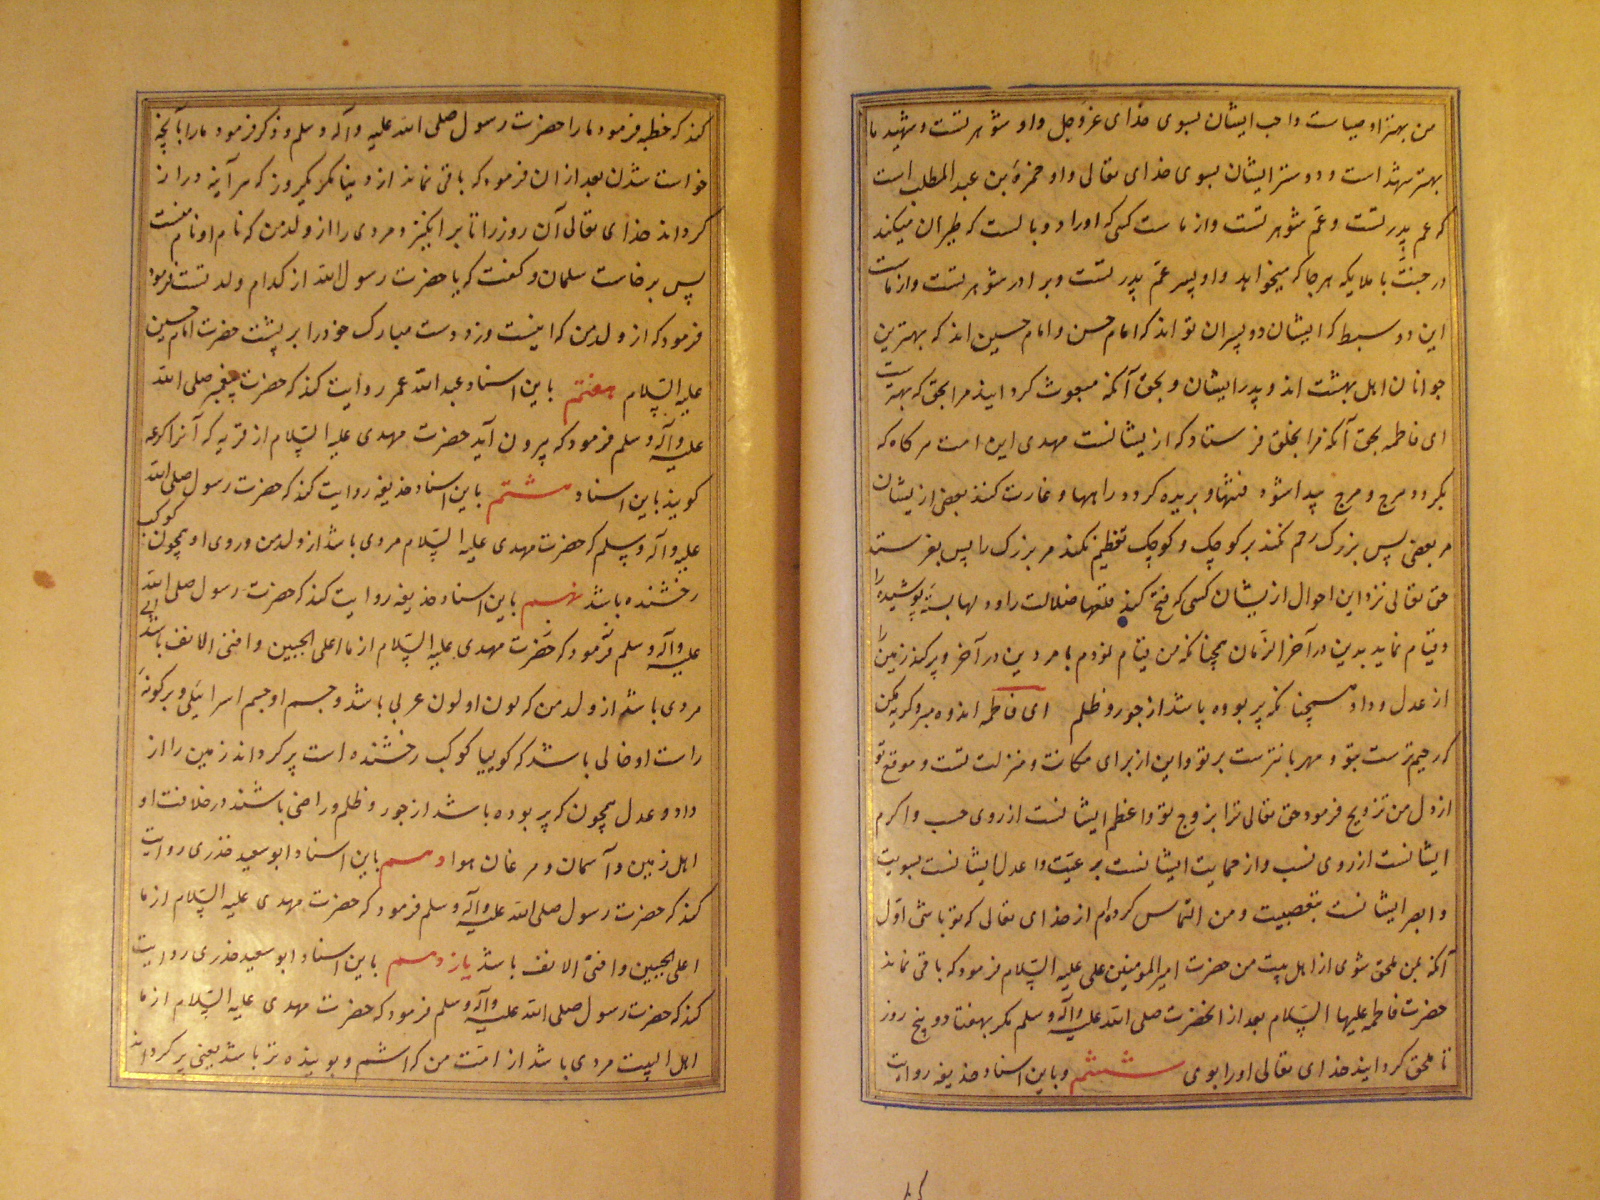 من بهتر اوصیاست واحب ایشان بسوی خدای عزوجل و او شوهر تست و شهید ما
بهتر شهداست و دوستر ایشان بسوی خدای تعالی و او حمزة بن عبد المطلب است
که عم پدر تست و عم شوهر تست و از ماست کسی که او را دو بالست که طیران میکند
در جنت با ملایکه هر جا که میخواهد و او پسر عم پدر تست و برادر شوهر تست و از ماست
این دو سبط که ایشان دو پسران تو اند که امام حسن و امام حسین اند که بهترین
جوانان اهل بهشت اند و پدر ایشان و بحق آنکه مبعوث کردانیده مرا بحق که بهترست
ای فاطمه بحق آنکه مرا بخلق فرستاد که از یشانست مهدی این امت هر کاه که
بکردد هرج و مرج پیدا شود فتنها و بریده کردد راهها و غارت کنند بعضی از یشان
مر بعضی پس بزرک رحم نکند بر کوچک و کوچک تعظیم نکند مر بزرک را پس بفرستد
حق تعالی نزد این احوال از یشان کسی که فتح کند قلعها ضلالت را و دلها بسته پوشیده را
و قیام نماید بدین در آخر الزمان همچنانکه من قیام نمودم بامر دین در آخر و پر کند زمین را
از عدل و داد همچنانکه پر بوده باشد از جور و ظلم ای فاطمه اندوه مبر و کریه مکن
که رحیم ترست بتو و مهربانترست بر تو و این از برای مکانت و منزلت تست و موقع تو
از دل من تزویج فرمود حق تعالی ترا بزوج تو و اعظم ایشانست از روی حسب و اکرم
ایشانست از روی نسب و از حمایت ایشانست بر عیّت و اعدل ایشانست بسویت
و ابصر ایشانست بقضیت و من التماس کرده‌ام از خدای تعالی که تو باشی اول
آنکه بمن ملحق شوی از اهل بیت من حضرت امیرالمومنین علی علیه السلام فرمود که باقی نماند
حضرت فاطمه علیها السلام بعد از آنحضرت صلی الله علیه وآله وسلم مکر بهفتاد و پنج روز
تا ملحق کردانید خدای تعالی او را بوی ششم و باین اسناد حذیفه روایت
کند که خطبه فرمود ما را حضرت رسول صلی الله علیه وآله وسلم و ذکر فرمود ما را بآنچه
خواست شدن بعد از ان فرمود که باقی نماند از دنیا مکر یکروز که هر آینه دراز
کرداند خدای تعالی آن روز را تا بر انکیزد مردی را از ولد من که نام او نام منست
پس برخاست سلمان و کفت که یا حضرت رسول الله از کدام ولد تست فرمود
فرمود که از ولد من که اینست و زد دست مبارک خود را بر پشت حضرت امام حسین
علیه السلام هفتم باین اسناد عبد الله عمر روایت کند که حضرت پیغمبر صلی الله
علیه وآله وسلم فرمود که بیرون آید حضرت مهدی علیه السلام از قریه که آنرا کرعه
کویند باین اسناد هشتم باین اسناد حذیفه روایت کند که حضرت رسول صلی الله
علیه وآله وسلم که حضرت مهدی علیه السلام مردی باشد از ولد من و روی او همچون کوکب
رخشنده باشد نهم باین اسناد حذیفه روایت کند که حضرت رسول صلی الله
علیه وآله وسلم فرمود که حضرت مهدی علیه السلام از ما اعلی الجبین و اضنی الانف باشد
مردی باشد از ولد من که لون او لون عربی باشد و جسم او جسم اسرائیلی و بر کونهٔ
راست او خالی باشد که کوییا کوکب رخشنده است پر کرداند زمین را از
داد و عدل همچون که پر بوده باشد از جور و ظلم و راضی باشند در خلافت او
اهل زمین و آسمان و مرغان هوا دهم باین اسناد ابو سعید خذری روایت
کند که حضرت رسول صلی الله علیه وآله وسلم فرمود که حضرت مهدی علیه السلام از ما
اعلی الجبین و اضنی الانف باشد یازدهم باین اسناد ابو سعید خذری روایت
کند که حضرت رسول صلی الله علیه وآله وسلم فرمود که حضرت مهدی علیه السلام از ما
اهل البیت مردی باشد از امت من که اشم و بو بینده تر باشد یعنی پر کرداند